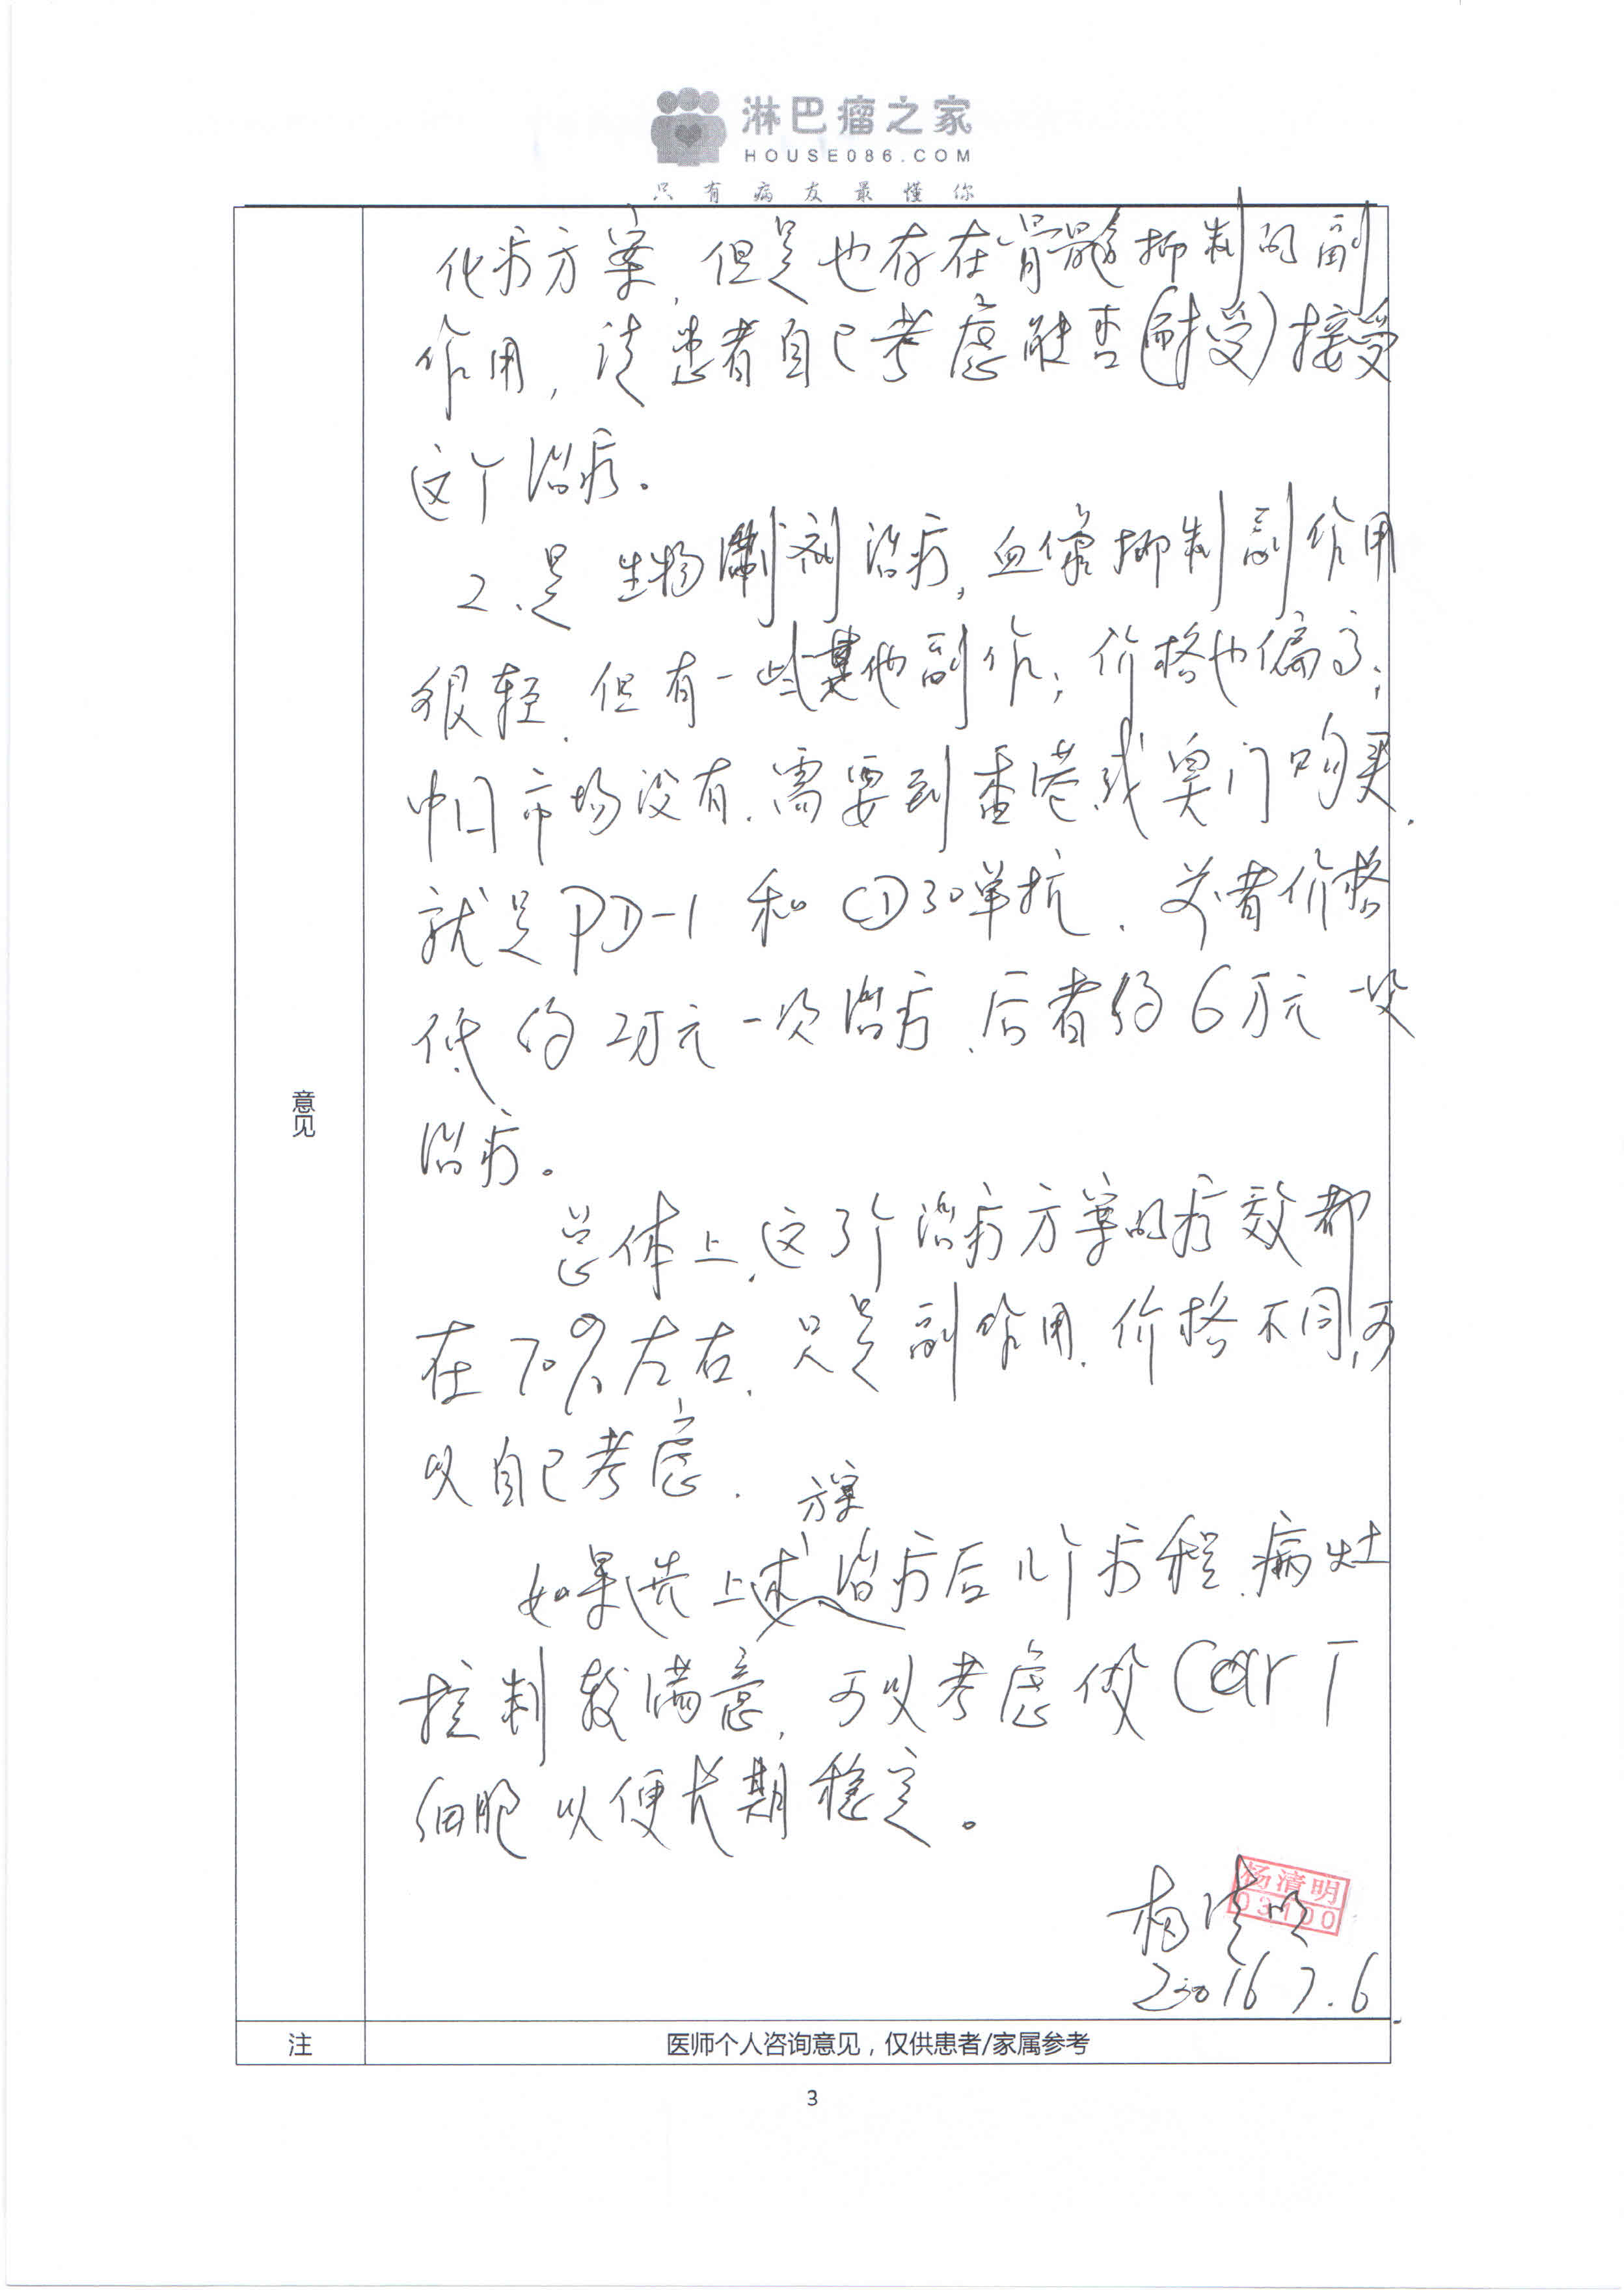 淋巴瘤之家
HOUSE086.COM
只有病友最懂你
化疗方案,但是也存在骨髓抑制的副
作用,请患者自己考虑能否(耐受)接受
这个治疗。
2.是生物制剂治疗,血像抑制副作用
很轻,但有一些其他副作;价格也偏高;
中国市场没有.需要到香港或奥门购买.
就是PD-1和CD30单抗.前者价格
低约2万元一次治疗,后者约6万元一次
治疗。
总体上,这3个治疗方案的疗效都
在70%左右,只是副作用.价格不同,可
以自己考虑.
方案
如果选上述治疗后几个疗程,病灶
控制较满意,可以考虑做Car T
细胞以便长期稳定。
意见
杨清明
03100
杨清明
2016 7.6
注
医师个人咨询意见,仅供患者/家属参考
3